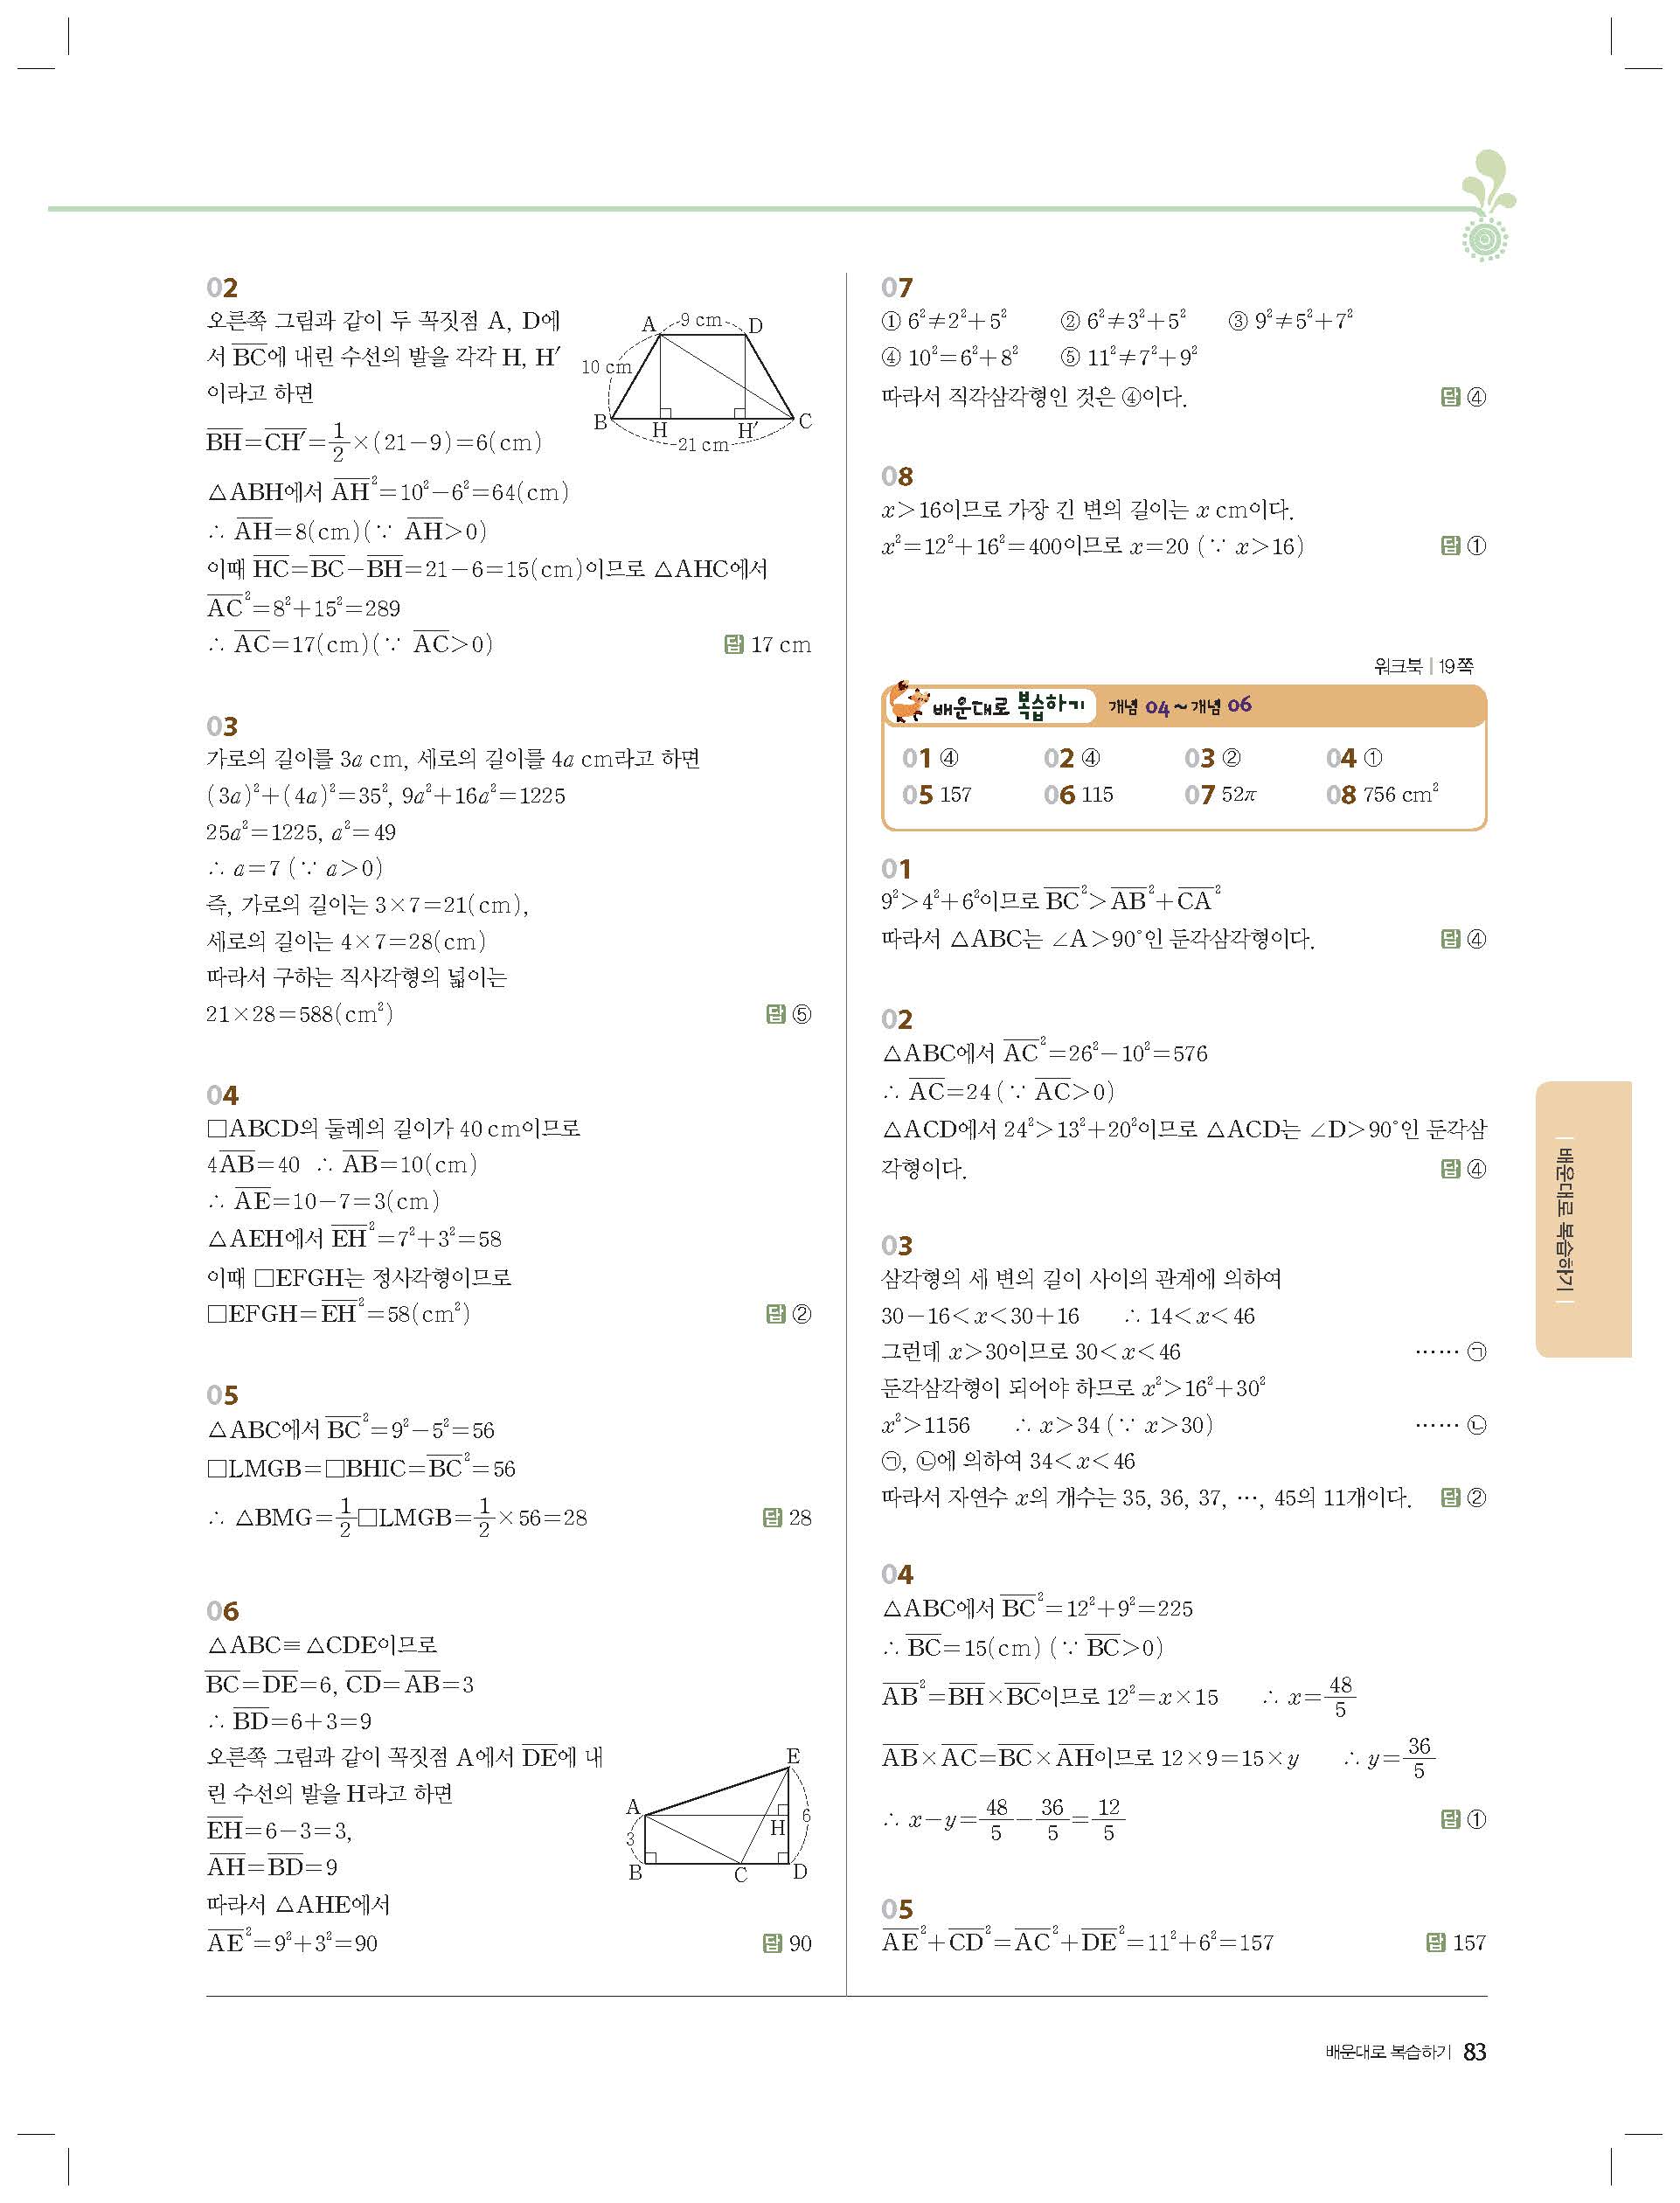 02
오른쪽 그림과 같이 두 꼭짓점 A, D에
서 B̅C̅에 내린 수선의 발을 각각 H, H′
이라고 하면
B̅H̅=C̅H̅′=1/2×(21-9)=6(cm)
△ABH에서 A̅H̅²=10²-6²=64(cm)
∴ A̅H̅=8(cm)(∵ A̅H̅>0)
이때 H̅C̅=B̅C̅-B̅H̅=21-6=15(cm)이므로 △AHC에서
A̅C̅²=8²+15²=289
∴ A̅C̅=17(cm)(∵ A̅C̅>0) 답 17 cm
A 9 cm D
10 cm
B H H′ C
21 cm
03
가로의 길이를 3a cm, 세로의 길이를 4a cm라고 하면
(3a)²+(4a)²=35², 9a²+16a²=1225
25a²=1225, a²=49
∴ a=7 (∵ a>0)
즉, 가로의 길이는 3×7=21(cm),
세로의 길이는 4×7=28(cm)
따라서 구하는 직사각형의 넓이는
21×28=588(cm²) 답 ⑤
04
□ABCD의 둘레의 길이가 40 cm이므로
4A̅B̅=40 ∴ A̅B̅=10(cm)
∴ A̅E̅=10-7=3(cm)
△AEH에서 E̅H̅²=7²+3²=58
이때 □EFGH는 정사각형이므로
□EFGH=E̅H̅²=58(cm²) 답 ②
05
△ABC에서 B̅C̅²=9²-5²=56
□LMGB=□BHIC=B̅C̅²=56
∴ △BMG=1/2□LMGB=1/2×56=28 답 28
06
△ABC≡△CDE이므로
B̅C̅=D̅E̅=6, C̅D̅=A̅B̅=3
∴ B̅D̅=6+3=9
오른쪽 그림과 같이 꼭짓점 A에서 D̅E̅에 내
린 수선의 발을 H라고 하면
E̅H̅=6-3=3,
A̅H̅=B̅D̅=9
따라서 △AHE에서
A̅E̅²=9²+3²=90 답 90
E
A 6
H
3
B C D
07
① 6²≠2²+5² ② 6²≠3²+5² ③ 9²≠5²+7²
④ 10²=6²+8² ⑤ 11²≠7²+9²
따라서 직각삼각형인 것은 ④이다. 답 ④
08
x>16이므로 가장 긴 변의 길이는 x cm이다.
x²=12²+16²=400이므로 x=20 (∵ x>16) 답 ①
워크북 | 19쪽
배운대로 복습하기 개념 04 ~ 개념 06
01 ④ 02 ④ 03 ② 04 ①
05 157 06 115 07 52π 08 756 cm²
01
9²>4²+6²이므로 B̅C̅²>A̅B̅²+C̅A̅²
따라서 △ABC는 ∠A>90°인 둔각삼각형이다. 답 ④
02
△ABC에서 A̅C̅²=26²-10²=576
∴ A̅C̅=24 (∵ A̅C̅>0)
△ACD에서 24²>13²+20²이므로 △ACD는 ∠D>90°인 둔각삼
각형이다. 답 ④
03
삼각형의 세 변의 길이 사이의 관계에 의하여
30-16<x<30+16 ∴ 14<x<46
그런데 x>30이므로 30<x<46 …… ㉠
둔각삼각형이 되어야 하므로 x²>16²+30²
x²>1156 ∴ x>34 (∵ x>30) …… ㉡
㉠, ㉡에 의하여 34<x<46
따라서 자연수 x의 개수는 35, 36, 37, …, 45의 11개이다. 답 ②
04
△ABC에서 B̅C̅²=12²+9²=225
∴ B̅C̅=15(cm) (∵ B̅C̅>0)
A̅B̅²=B̅H̅×B̅C̅이므로 12²=x×15 ∴ x=48/5
A̅B̅×A̅C̅=B̅C̅×A̅H̅이므로 12×9=15×y ∴ y=36/5
∴ x-y=48/5-36/5=12/5 답 ①
05
A̅E̅²+C̅D̅²=A̅C̅²+D̅E̅²=11²+6²=157 답 157
| 배운대로 복습하기 |
배운대로 복습하기 83